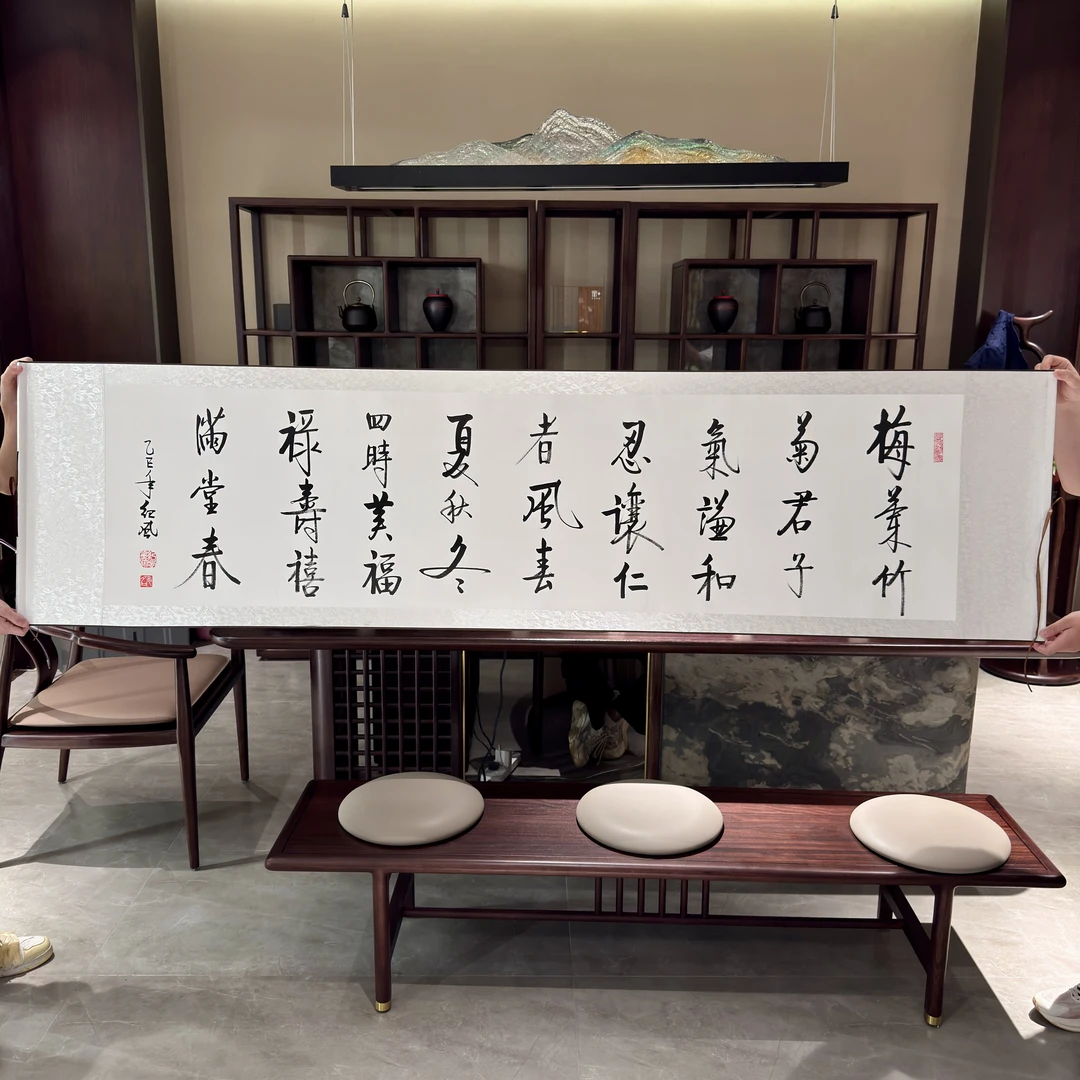 梅蘭竹
菊君子
氣謙和
忍讓仁
者風春
夏秋冬
四時美福
祿壽禧
滿堂春
乙巳年紅風